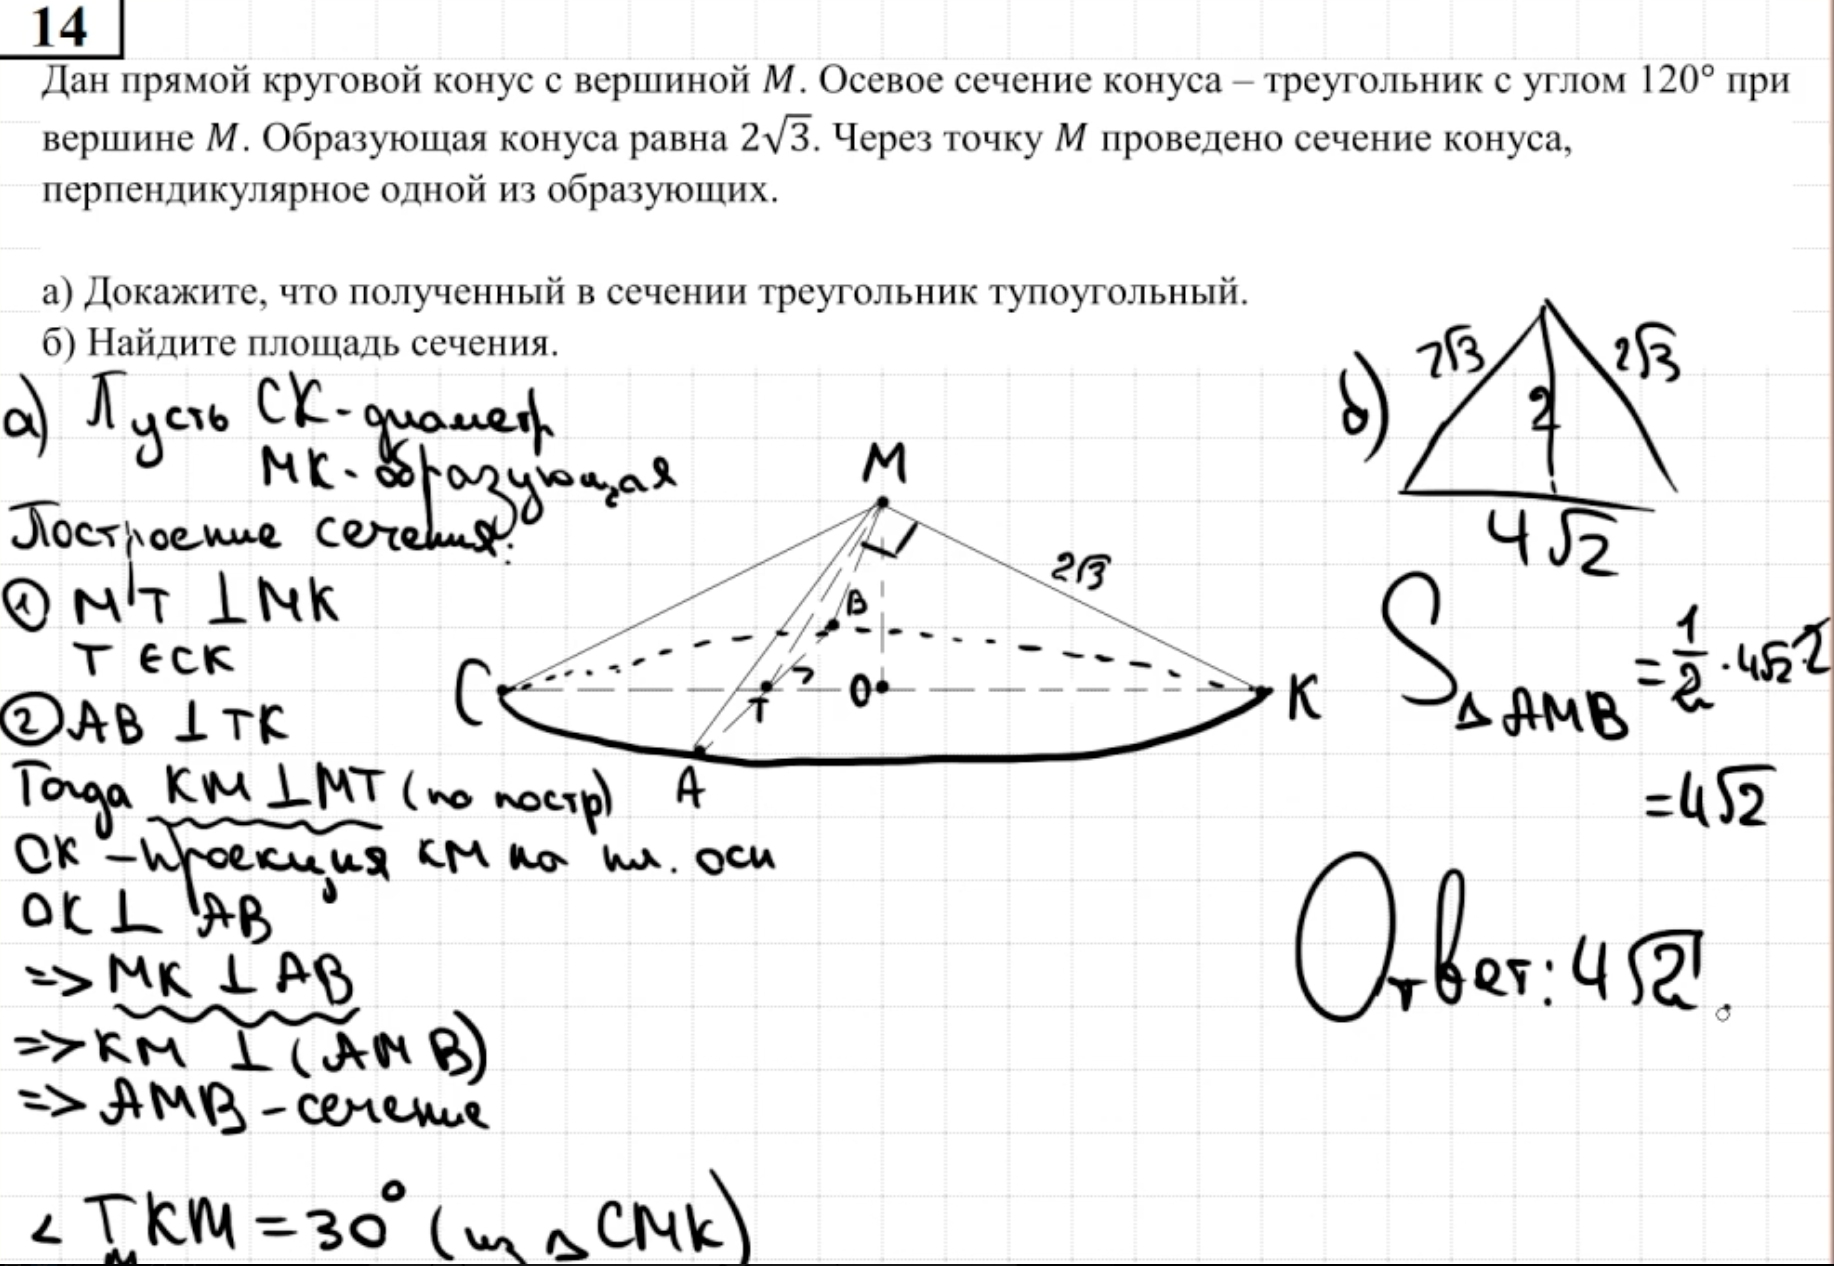 14
Дан прямой круговой конус с вершиной M. Осевое сечение конуса – треугольник с углом 120° при
вершине M. Образующая конуса равна 2√3. Через точку M проведено сечение конуса,
перпендикулярное одной из образующих.
а) Докажите, что полученный в сечении треугольник тупоугольный.
б) Найдите площадь сечения.
а) Пусть CK - диаметр
MK - образующая
Построение сечения:
① MT ⊥ MK
T ∈ CK
② AB ⊥ TK
Тогда KM ⊥ MT (по постр)
OK - проекция KM на пл. осн
OK ⊥ AB
=> MK ⊥ AB
=> KM ⊥ (AMB)
=> AMB - сечение
< TKM = 30° (из △ CMK)
M
2√3
B
C
T
O
K
A
б)
2√3
2√3
2
4√2
S△AMB = 1/2 · 4√2 2
= 4√2
Ответ: 4√2.